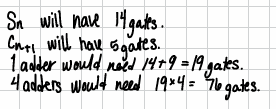 Sn will have 14 gates.
Cn+1 will have 5 gates.
1 adder would need 14+9=19 gates.
4 adders would need 19×4= 76 gates.